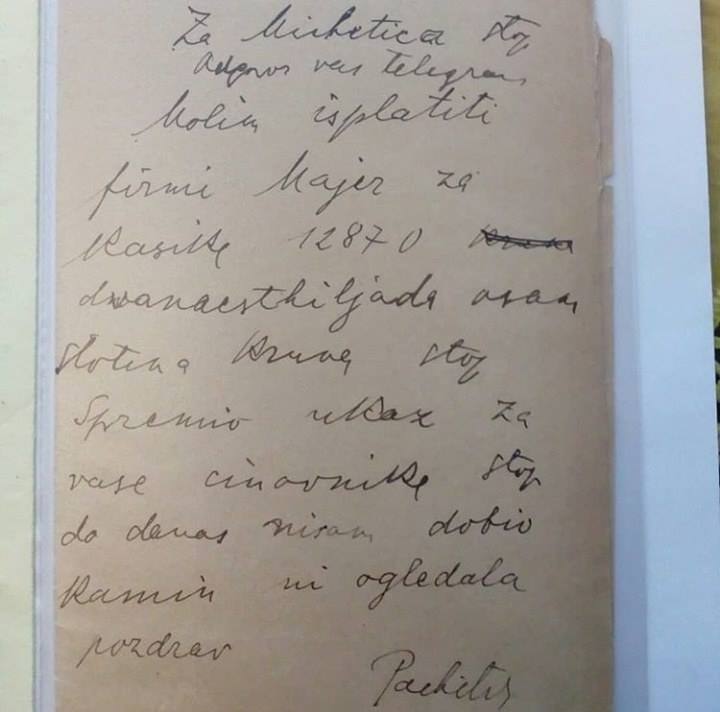 Za Mihetica stop
Odgovor vas telegram
Molim isplatiti
firmi Majer za
Kasike 12870
dvanaesthiljada osam
stotina Kruna stop
Spremio ukaz za
vase cinovnike stop
do danas nisam dobio
Kamin ni ogledala
pozdrav